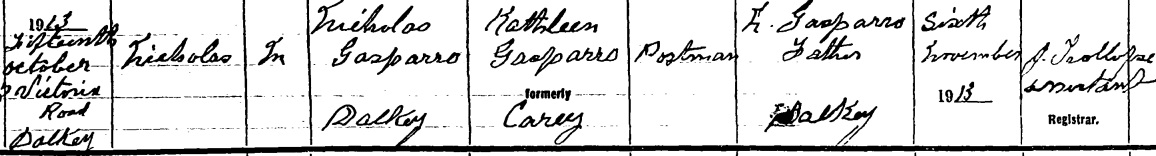 1913
Fifteenth
October
Victoria
Road
Dalkey
Nicholas
M
Nicholas
Gasparro
Dalkey
Kathleen
Gasparro
formerly
Carey
Postman
N. Gasparro
Father
Dalkey
Sixth
November
1913
J. Trollope
assistant
Registrar.